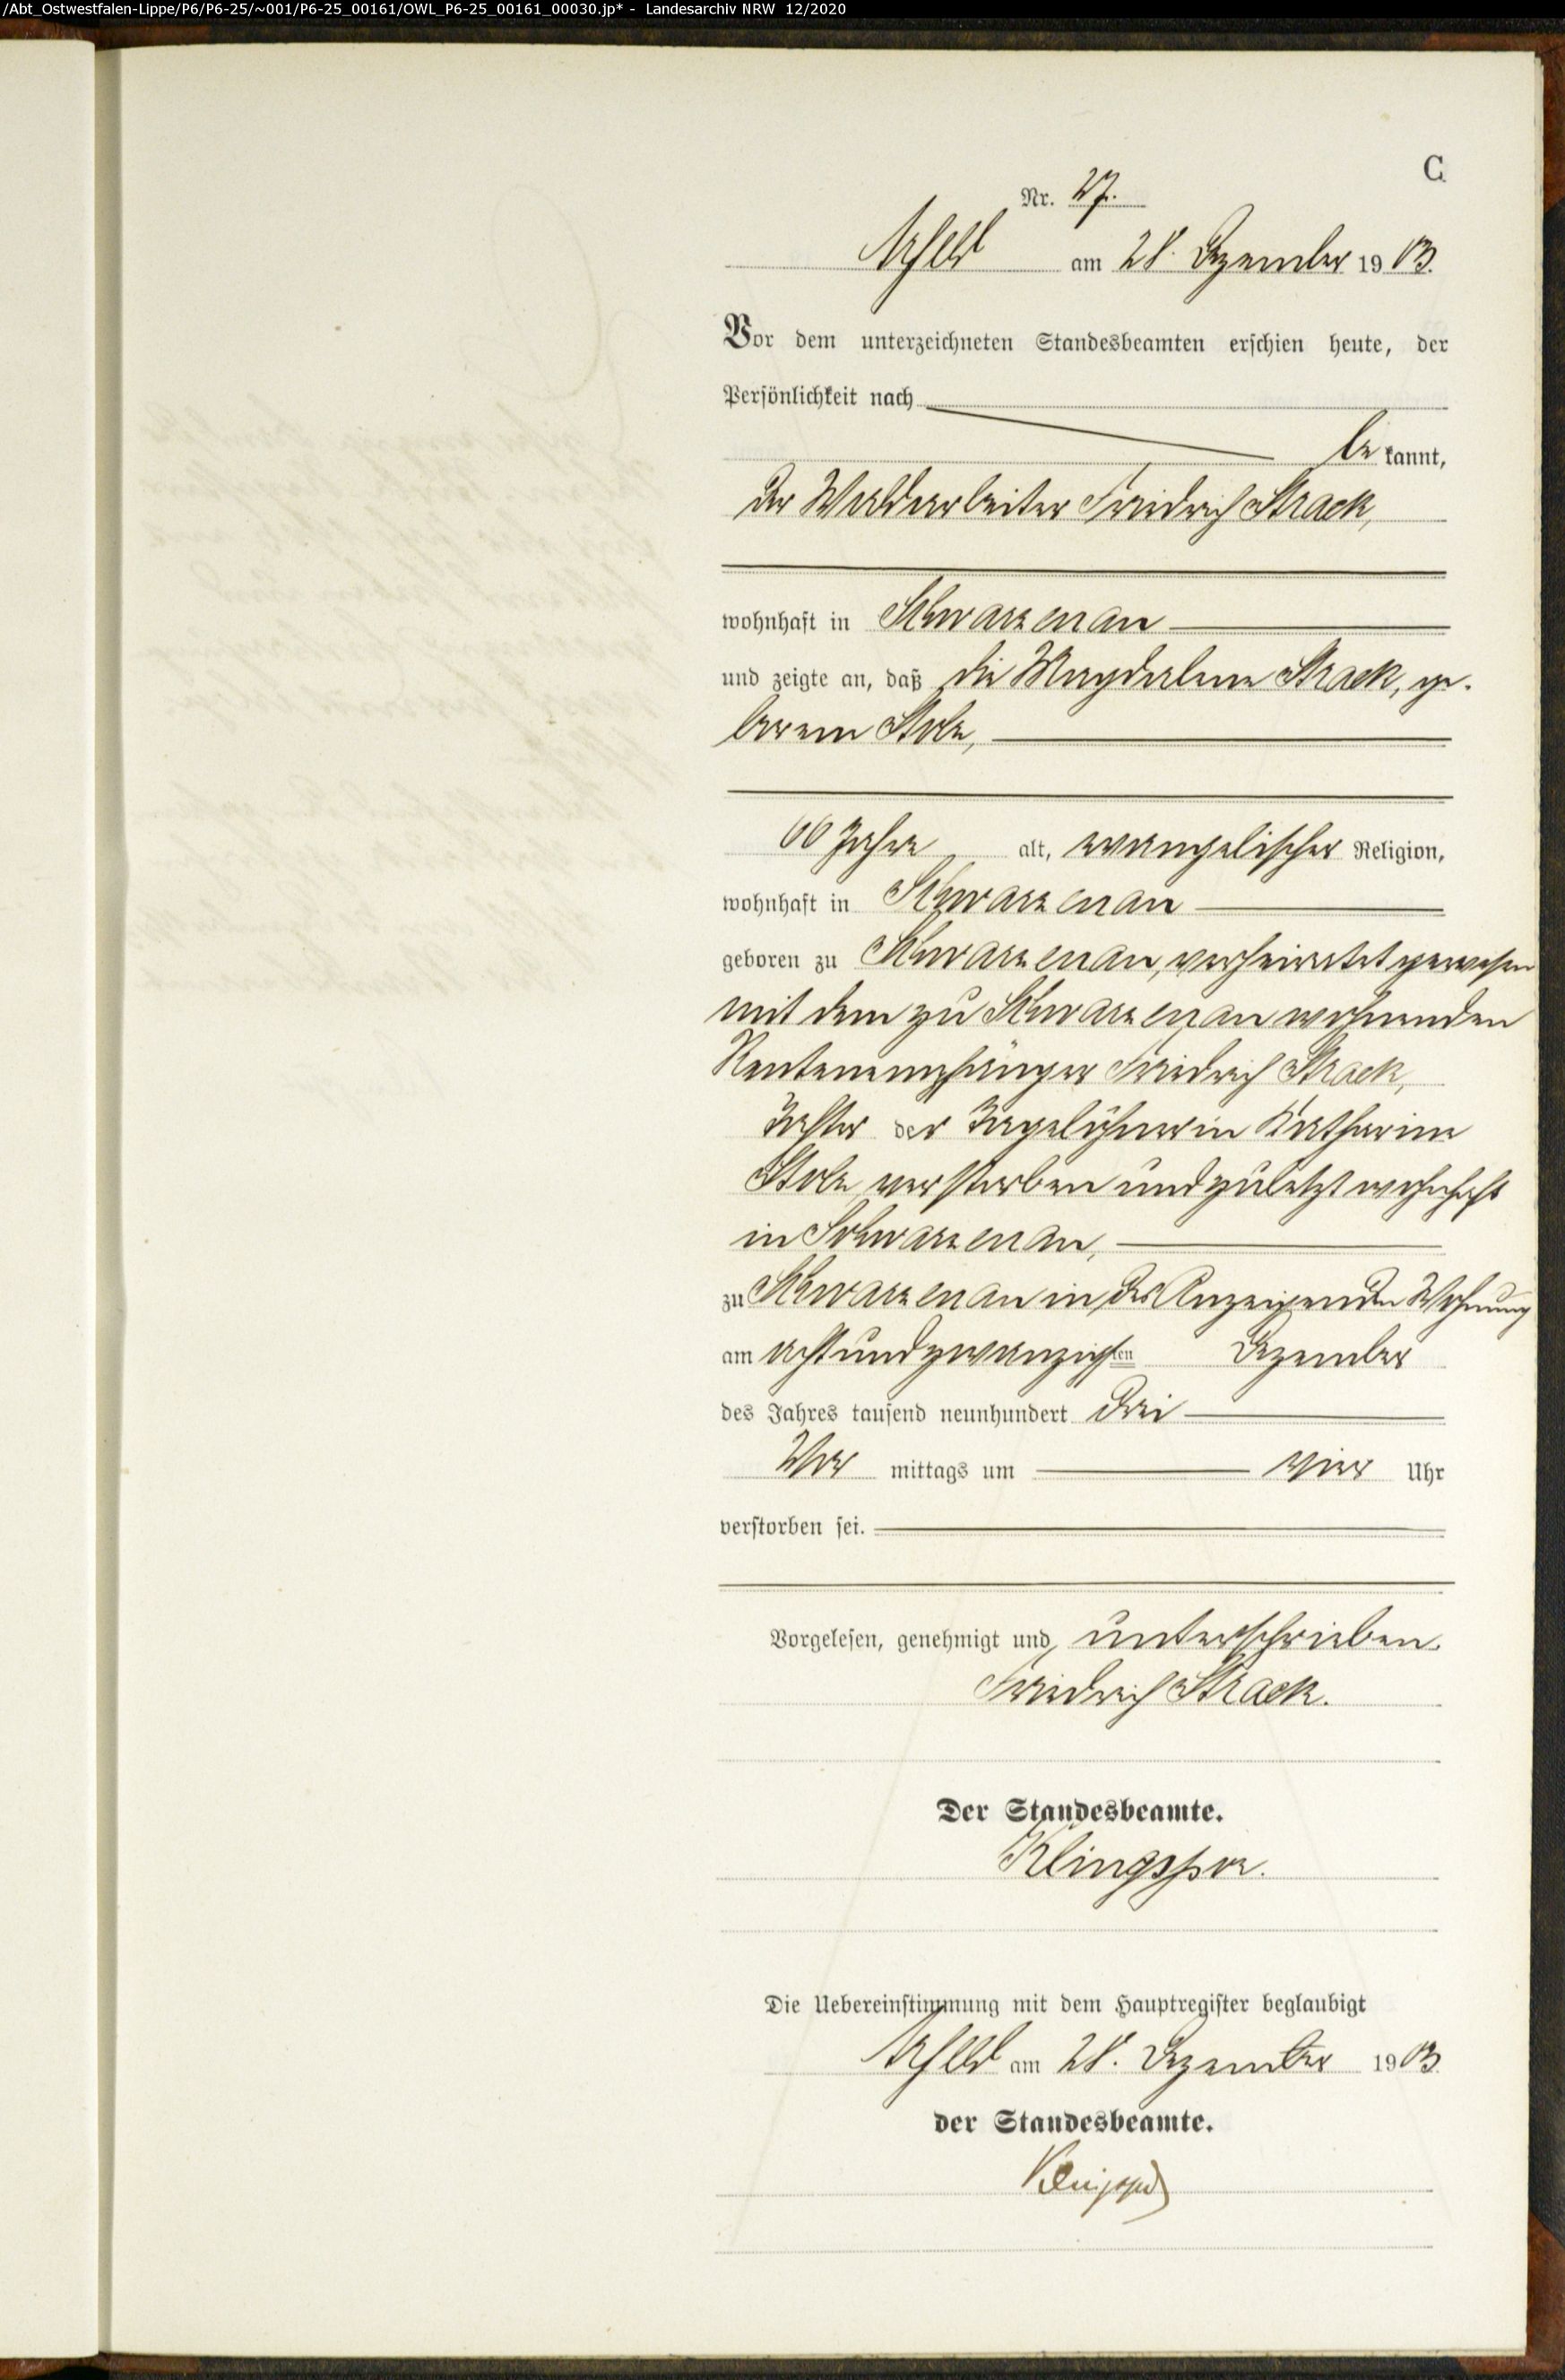 /Abt_Ostwestfalen-Lippe/P6/P6-25/~001/P6-25_00161/OWL_P6-25_00161_00030.jp* - Landesarchiv NRW 12/2020
C
Nr. 27.
Arfeld am 28. Dezember 1903.
Vor dem unterzeichneten Standesbeamten erschien heute, der
Persönlichkeit nach
be kannt,
der Waldarbeiter Friedrich Strack,
wohnhaft in Schwarzenau
und zeigte an, daß die Magdalene Strack, ge-
borene
66 Jahre alt, evangelischer Religion,
wohnhaft in Schwarzenau
geboren zu Schwarzenau, verheiratet gewesen
mit dem zu Schwarzenau wohnenden
Rentenempfänger Friedrich Strack,
Tochter der Tagelöhnerin Katharine
verstorben und zuletzt wohnhaft
in Schwarzenau,
zu Schwarzenau in des Anzeigenden Wohnung
am achtundzwanzigsten Dezember
des Jahres tausend neunhundert drei
Vor mittags um vier Uhr
verstorben sei.
Vorgelesen, genehmigt und unterschrieben.
Friedrich Strack.
Der Standesbeamte.
Klingspor.
Die Uebereinstimmung mit dem Hauptregister beglaubigt
Arfeld am 28. Dezember 1903
der Standesbeamte.
Klingspor